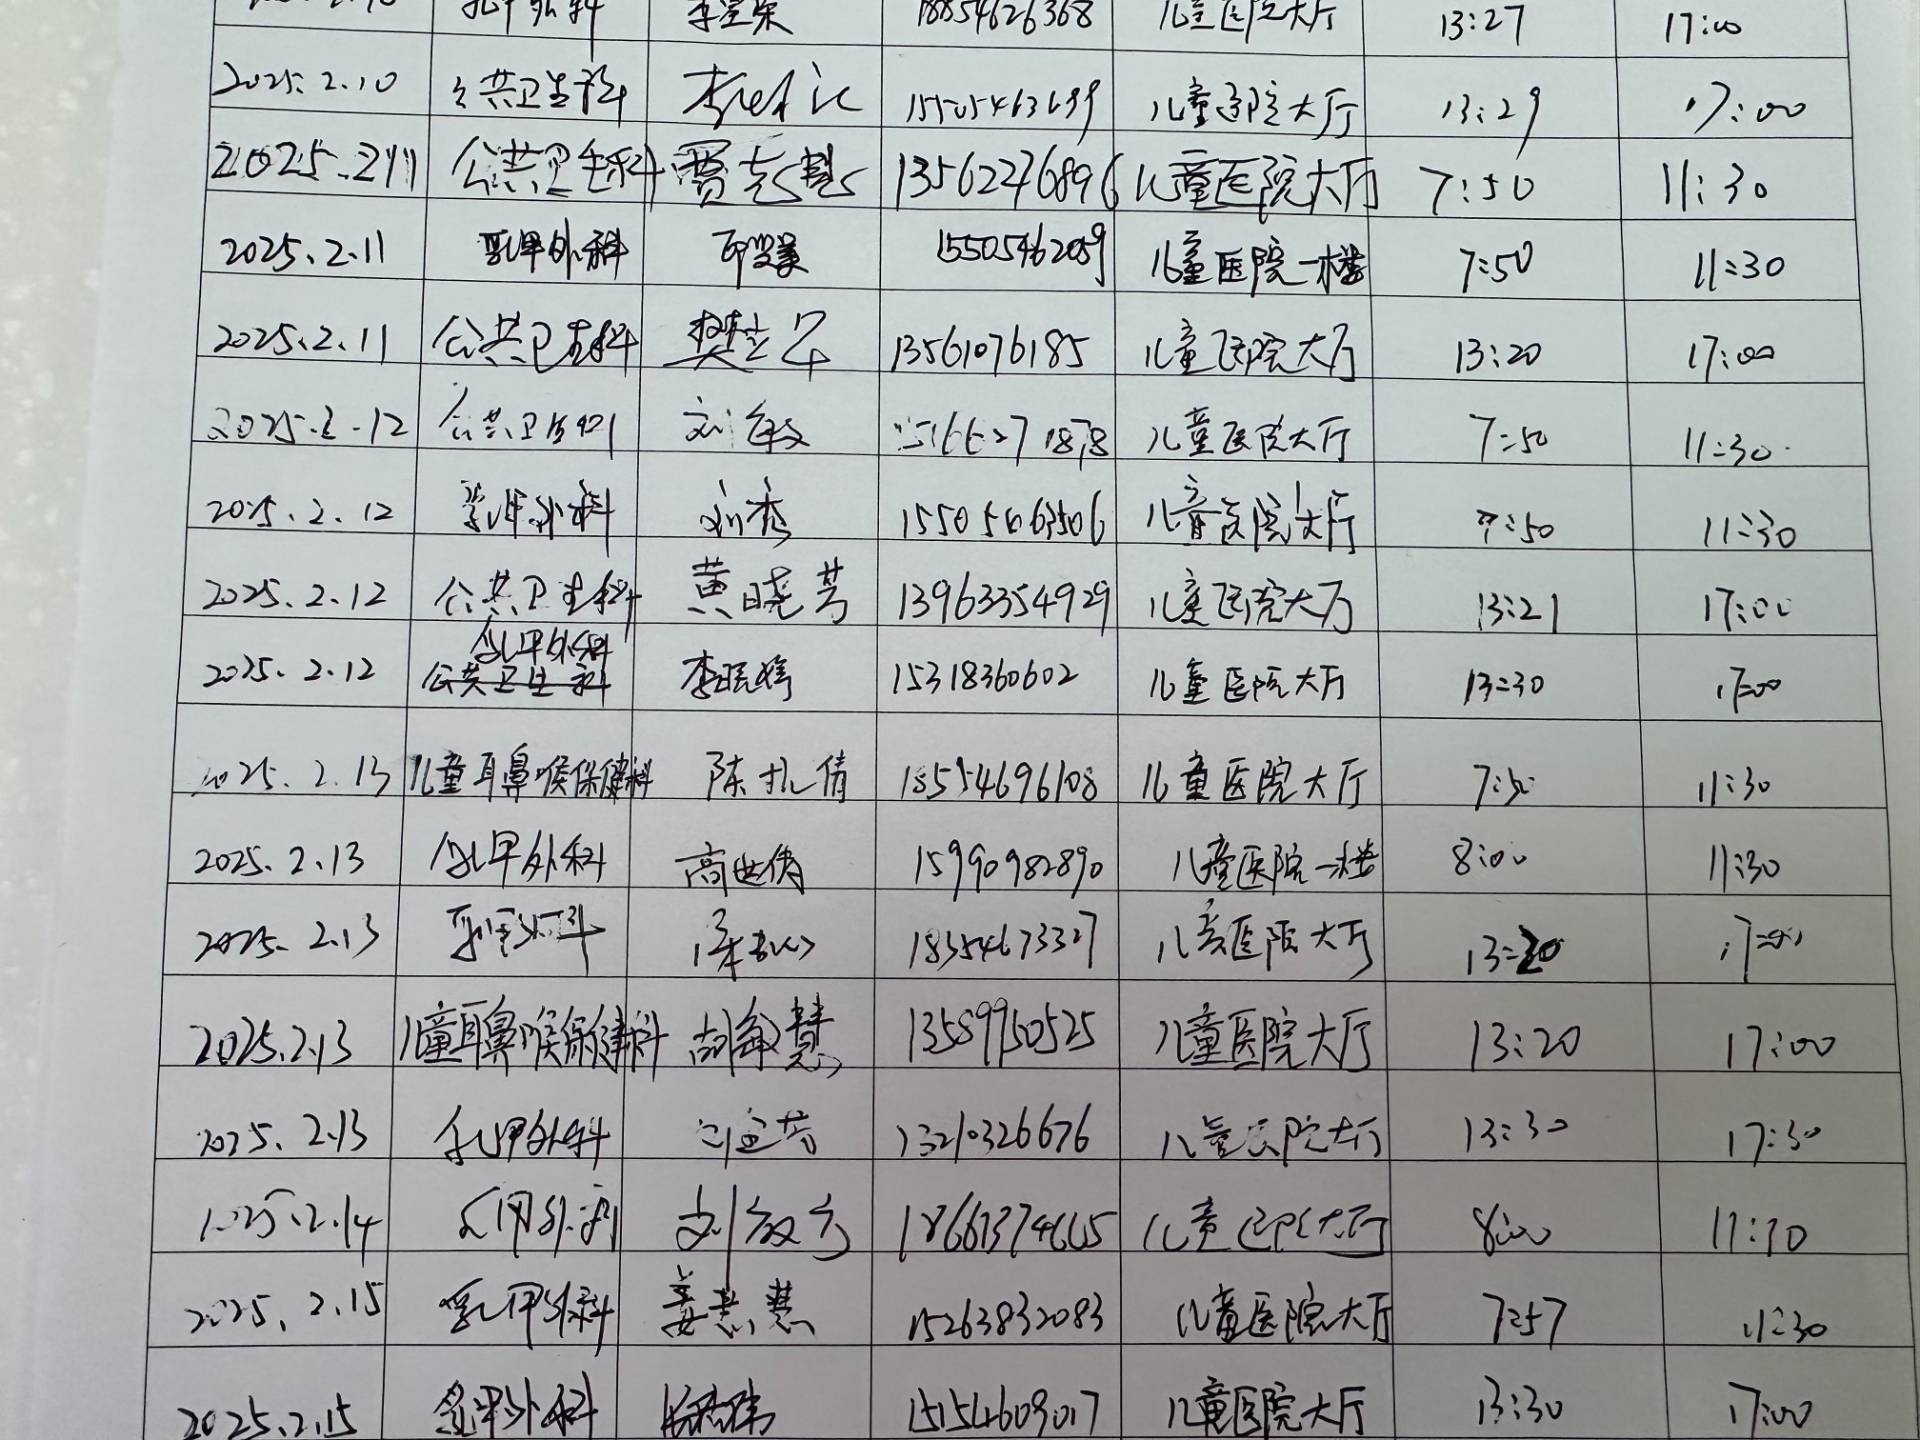 乳甲外科 18854626368 儿童医院大厅 13:27 17:00
2025.2.10 公共卫生科 儿童医院大厅 13:29 17:00
2025.2.11 公共卫生科 贾志慧 13562276896 儿童医院大厅 7:50 11:30
2025.2.11 乳甲外科 15505462059 儿童医院一楼 7:50 11:30
2025.2.11 公共卫生科 13561076185 儿童医院大厅 13:20 17:00
2025.2.12 公共卫生科 刘敏 儿童医院大厅 7:50 11:30
2025.2.12 乳甲外科 刘杰 儿童医院大厅 7:50 11:30
2025.2.12 公共卫生科 黄晓芳 13963354929 儿童医院大厅 13:21 17:00
乳甲外科
2025.2.12 公共卫生科 15318360602 儿童医院大厅 13:30 17:00
2025.2.13 儿童耳鼻喉保健科 18554696108 儿童医院大厅 7:50 11:30
2025.2.13 乳甲外科 高世倩 15990982890 儿童医院一楼 8:00 11:30
2025.2.13 18354673327 儿童医院大厅 13:20 17:00
2025.2.13 儿童耳鼻喉保健科 胡敏慧 13589950525 儿童医院大厅 13:20 17:00
2025.2.13 乳甲外科 13210326676 儿童医院大厅 13:30 17:30
2025.2.14 乳甲外科 儿童医院大厅 8:00 11:30
2025.2.15 乳甲外科 姜慧慧 15263832083 儿童医院大厅 7:57 11:30
2025.2.15 乳甲外科 15154609017 儿童医院大厅 13:30 17:00